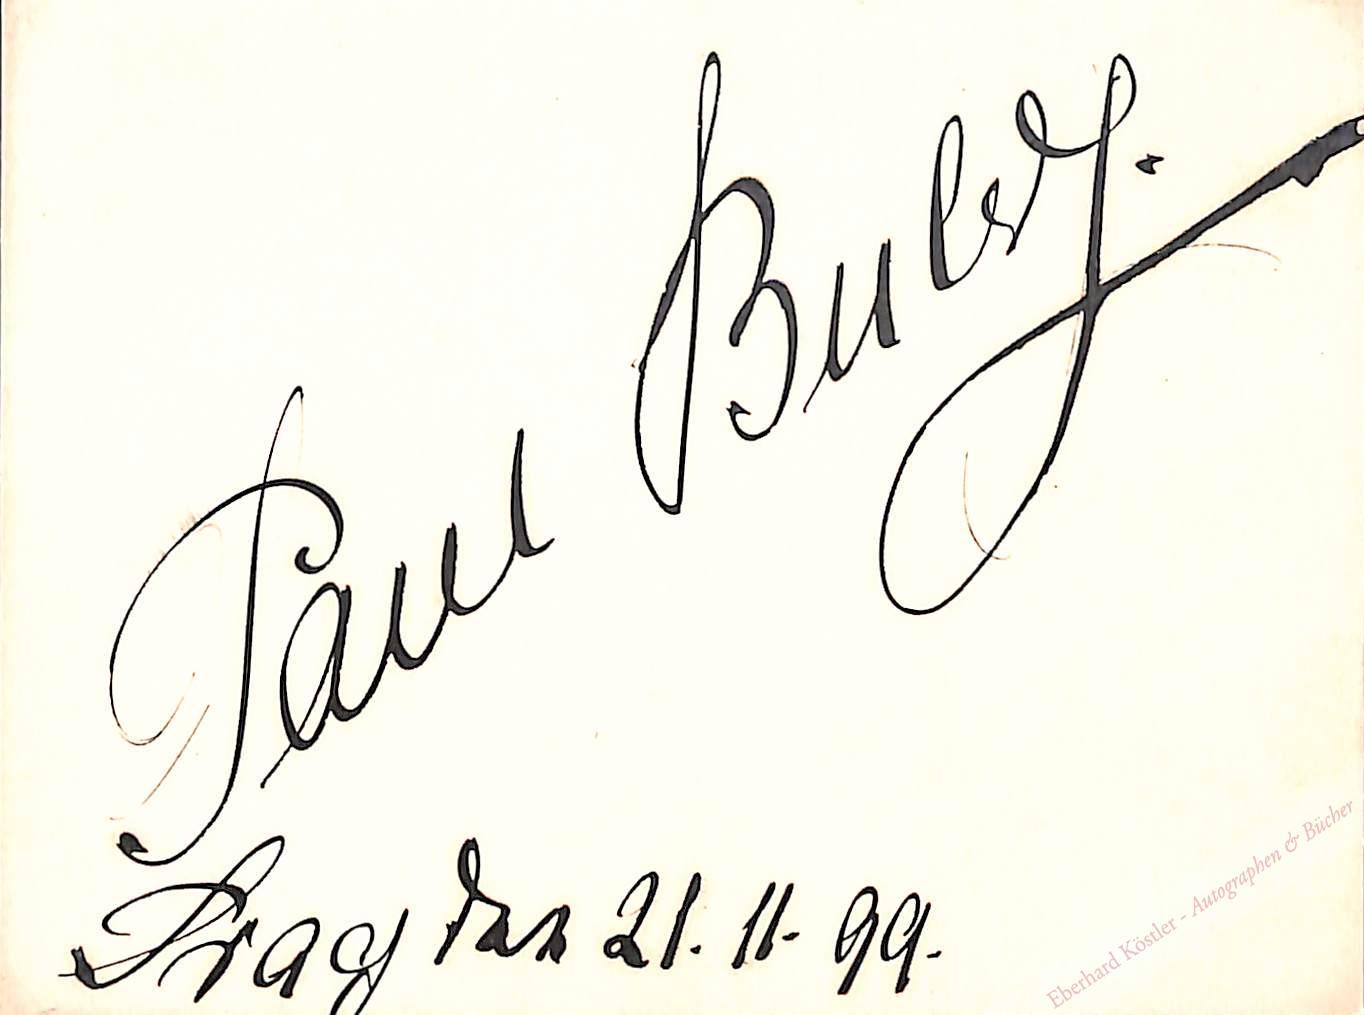 Paul Bulß.
Prag den 21. 11. 99.
Eberhard Köstler - Autographen & Bücher